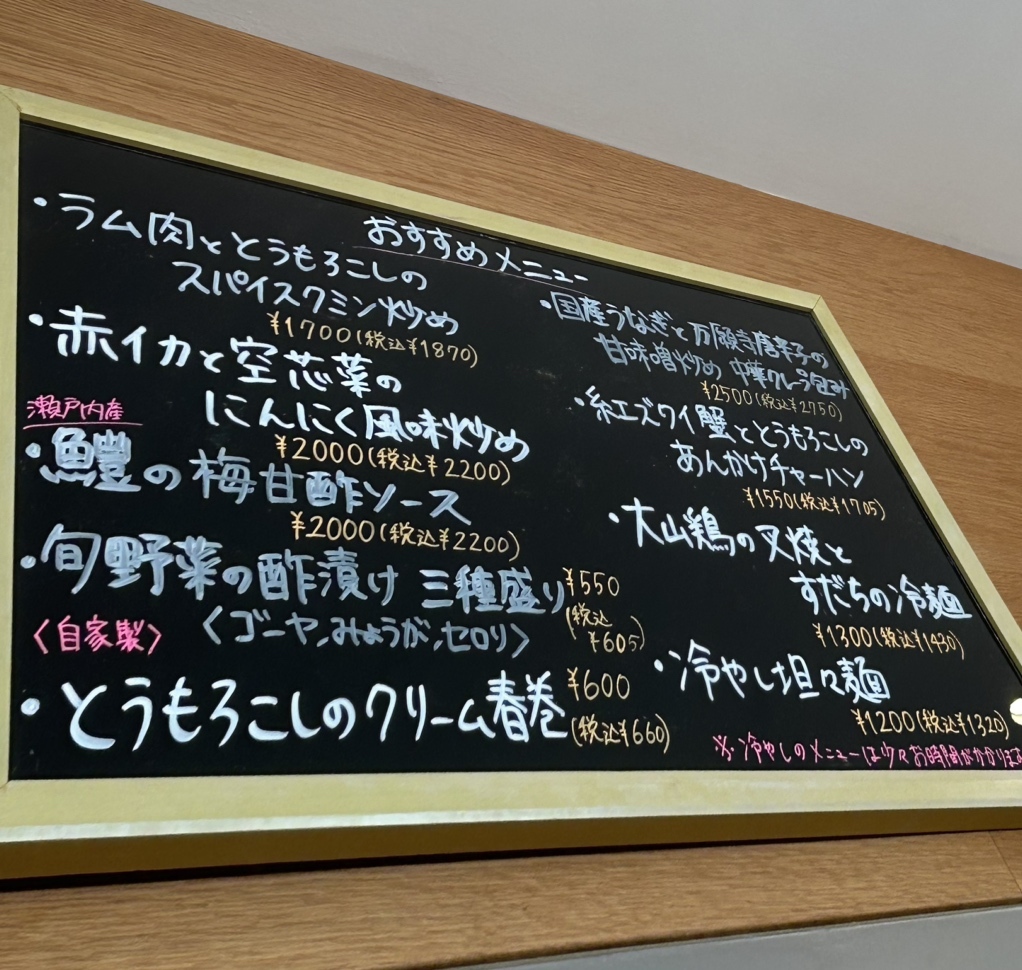 おすすめメニュー
・ラム肉ととうもろこしの
スパイスクミン炒め
¥1700(税込¥1870)
・赤イカと空芯菜の
にんにく風味炒め
¥2000(税込¥2200)
瀬戸内産
・鱧の梅甘酢ソース
¥2000(税込¥2200)
・旬野菜の酢漬け 三種盛り ¥550
(税込
¥605)
〈自家製〉 〈ゴーヤ,みょうが,セロリ〉
・とうもろこしのクリーム春巻 ¥600
(税込¥660)
・国産うなぎと万願寺唐辛子の
甘味噌炒め 中華クレープ包み
¥2500(税込¥2750)
・紅ズワイ蟹ととうもろこしの
あんかけチャーハン
¥1550(税込¥1705)
・大山鶏の叉焼と
すだちの冷麺
¥1300(税込¥1430)
・冷やし坦々麺
¥1200(税込¥1320)
※冷やしのメニューは少々お時間がかかります